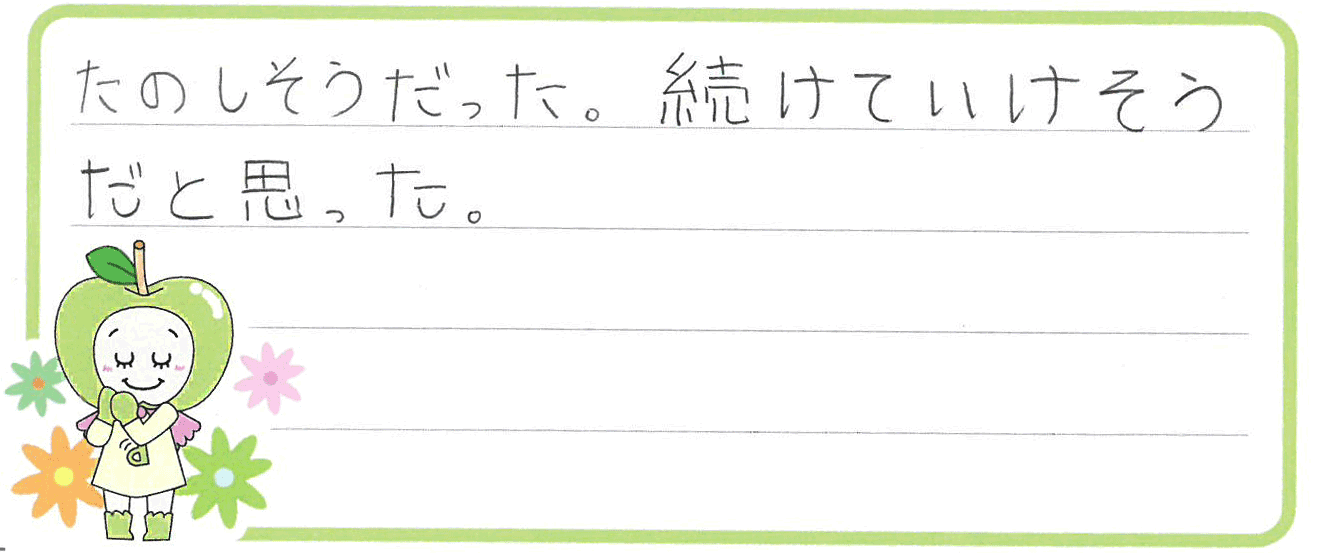 たのしそうだった。続けていけそう
だと思った。